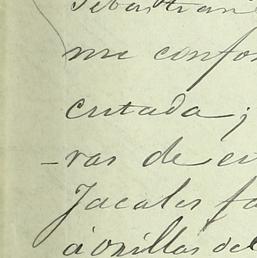 Sebastian
me confor
cutada;
-ras de en
Jacales fa
á orillas del